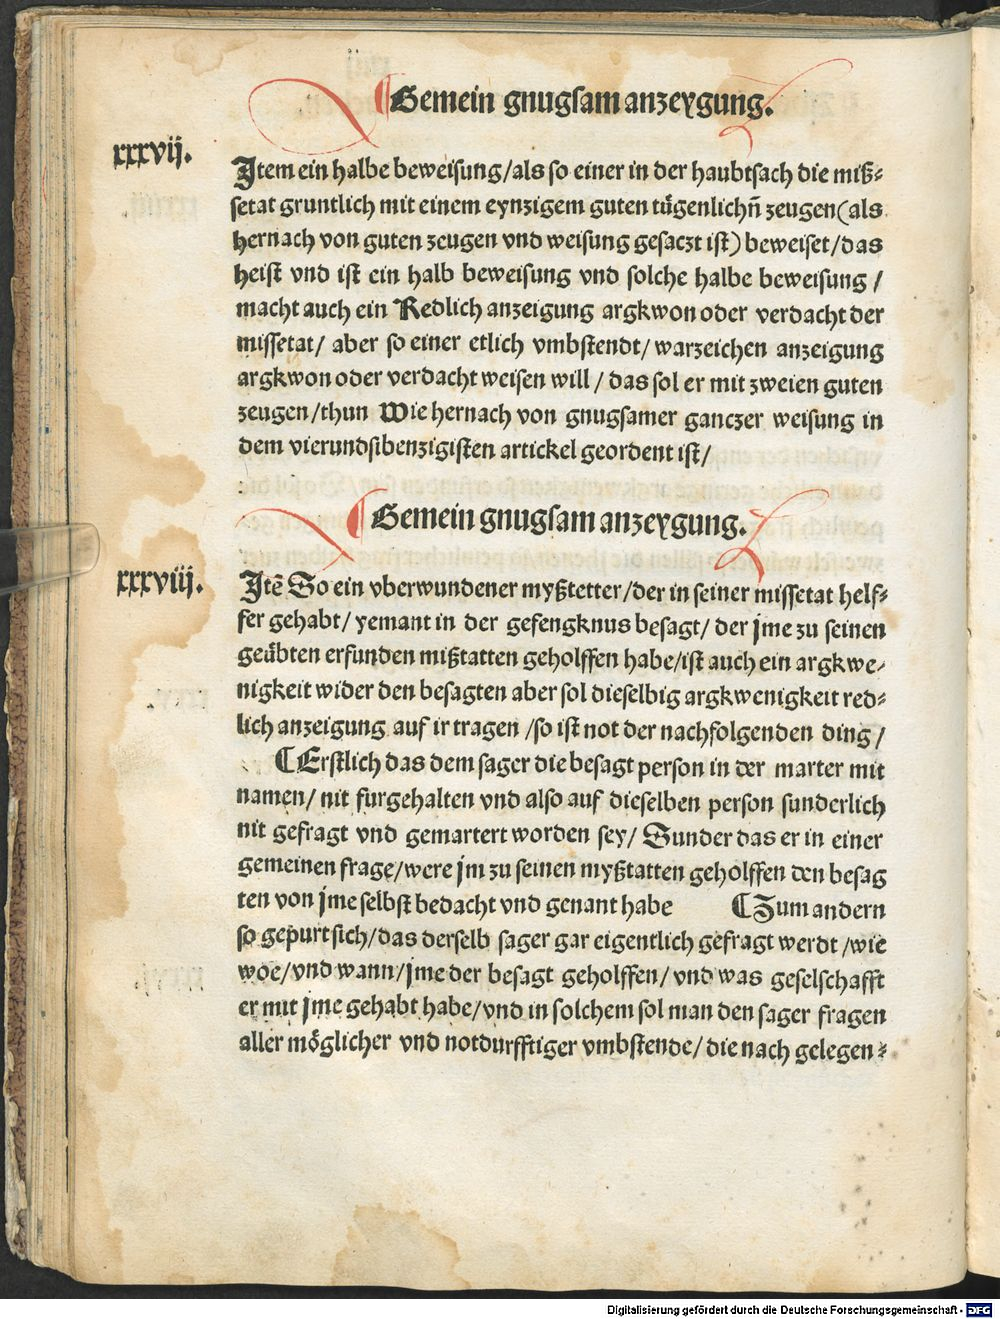 Gemein gnugsam anzeygung.
xxxvij.
Item ein halbe beweisung/als so einer in der haubtsach die miß⸗
setat gruntlich mit einem eynzigem guten tůgenlichn̄ zeugen(als
hernach von guten zeugen vnd weisung gesaczt ist) beweiset/das
heist vnd ist ein halb beweisung vnd solche halbe beweisung /
macht auch ein Redlich anzeigung argkwon oder verdacht der
missetat/ aber so einer etlich vmbstendt/ warzeichen anzeigung
argkwon oder verdacht weisen will / das sol er mit zweien guten
zeugen /thun Wie hernach von gnugsamer ganczer weisung in
dem vierundsibenzigisten artickel geordent ist/
Gemein gnugsam anzeygung.
xxxviij.
Itē So ein vberwundener myßtetter/der in seiner missetat helf⸗
fer gehabt/ yemant in der gefengknus besagt/ der jme zu seinen
geübten erfunden mißtatten geholffen habe/ist auch ein argkwe⸗
nigkeit wider den besagten aber sol dieselbig argkwenigkeit red⸗
lich anzeigung auf ir tragen /so ist not der nachfolgenden ding/
¶Erstlich das dem sager die besagt person in der marter mit
namen/ nit furgehalten vnd also auf dieselben person sunderlich
nit gefragt vnd gemartert worden sey/ Sunder das er in einer
gemeinen frage/were jm zu seinen myßtatten geholffen den besag
ten von jme selbst bedacht vnd genant habe ¶Zum andern
so gepurt sich/das derselb sager gar eigentlich gefragt werdt /wie
woe/vnd wann/jme der besagt geholffen/ vnd was geselschafft
er mit jme gehabt habe/vnd in solchem sol man den sager fragen
aller möglicher vnd notdurfftiger vmbstende/ die nach gelegen⸗
Digitalisierung gefördert durch die Deutsche Forschungsgemeinschaft - DFG